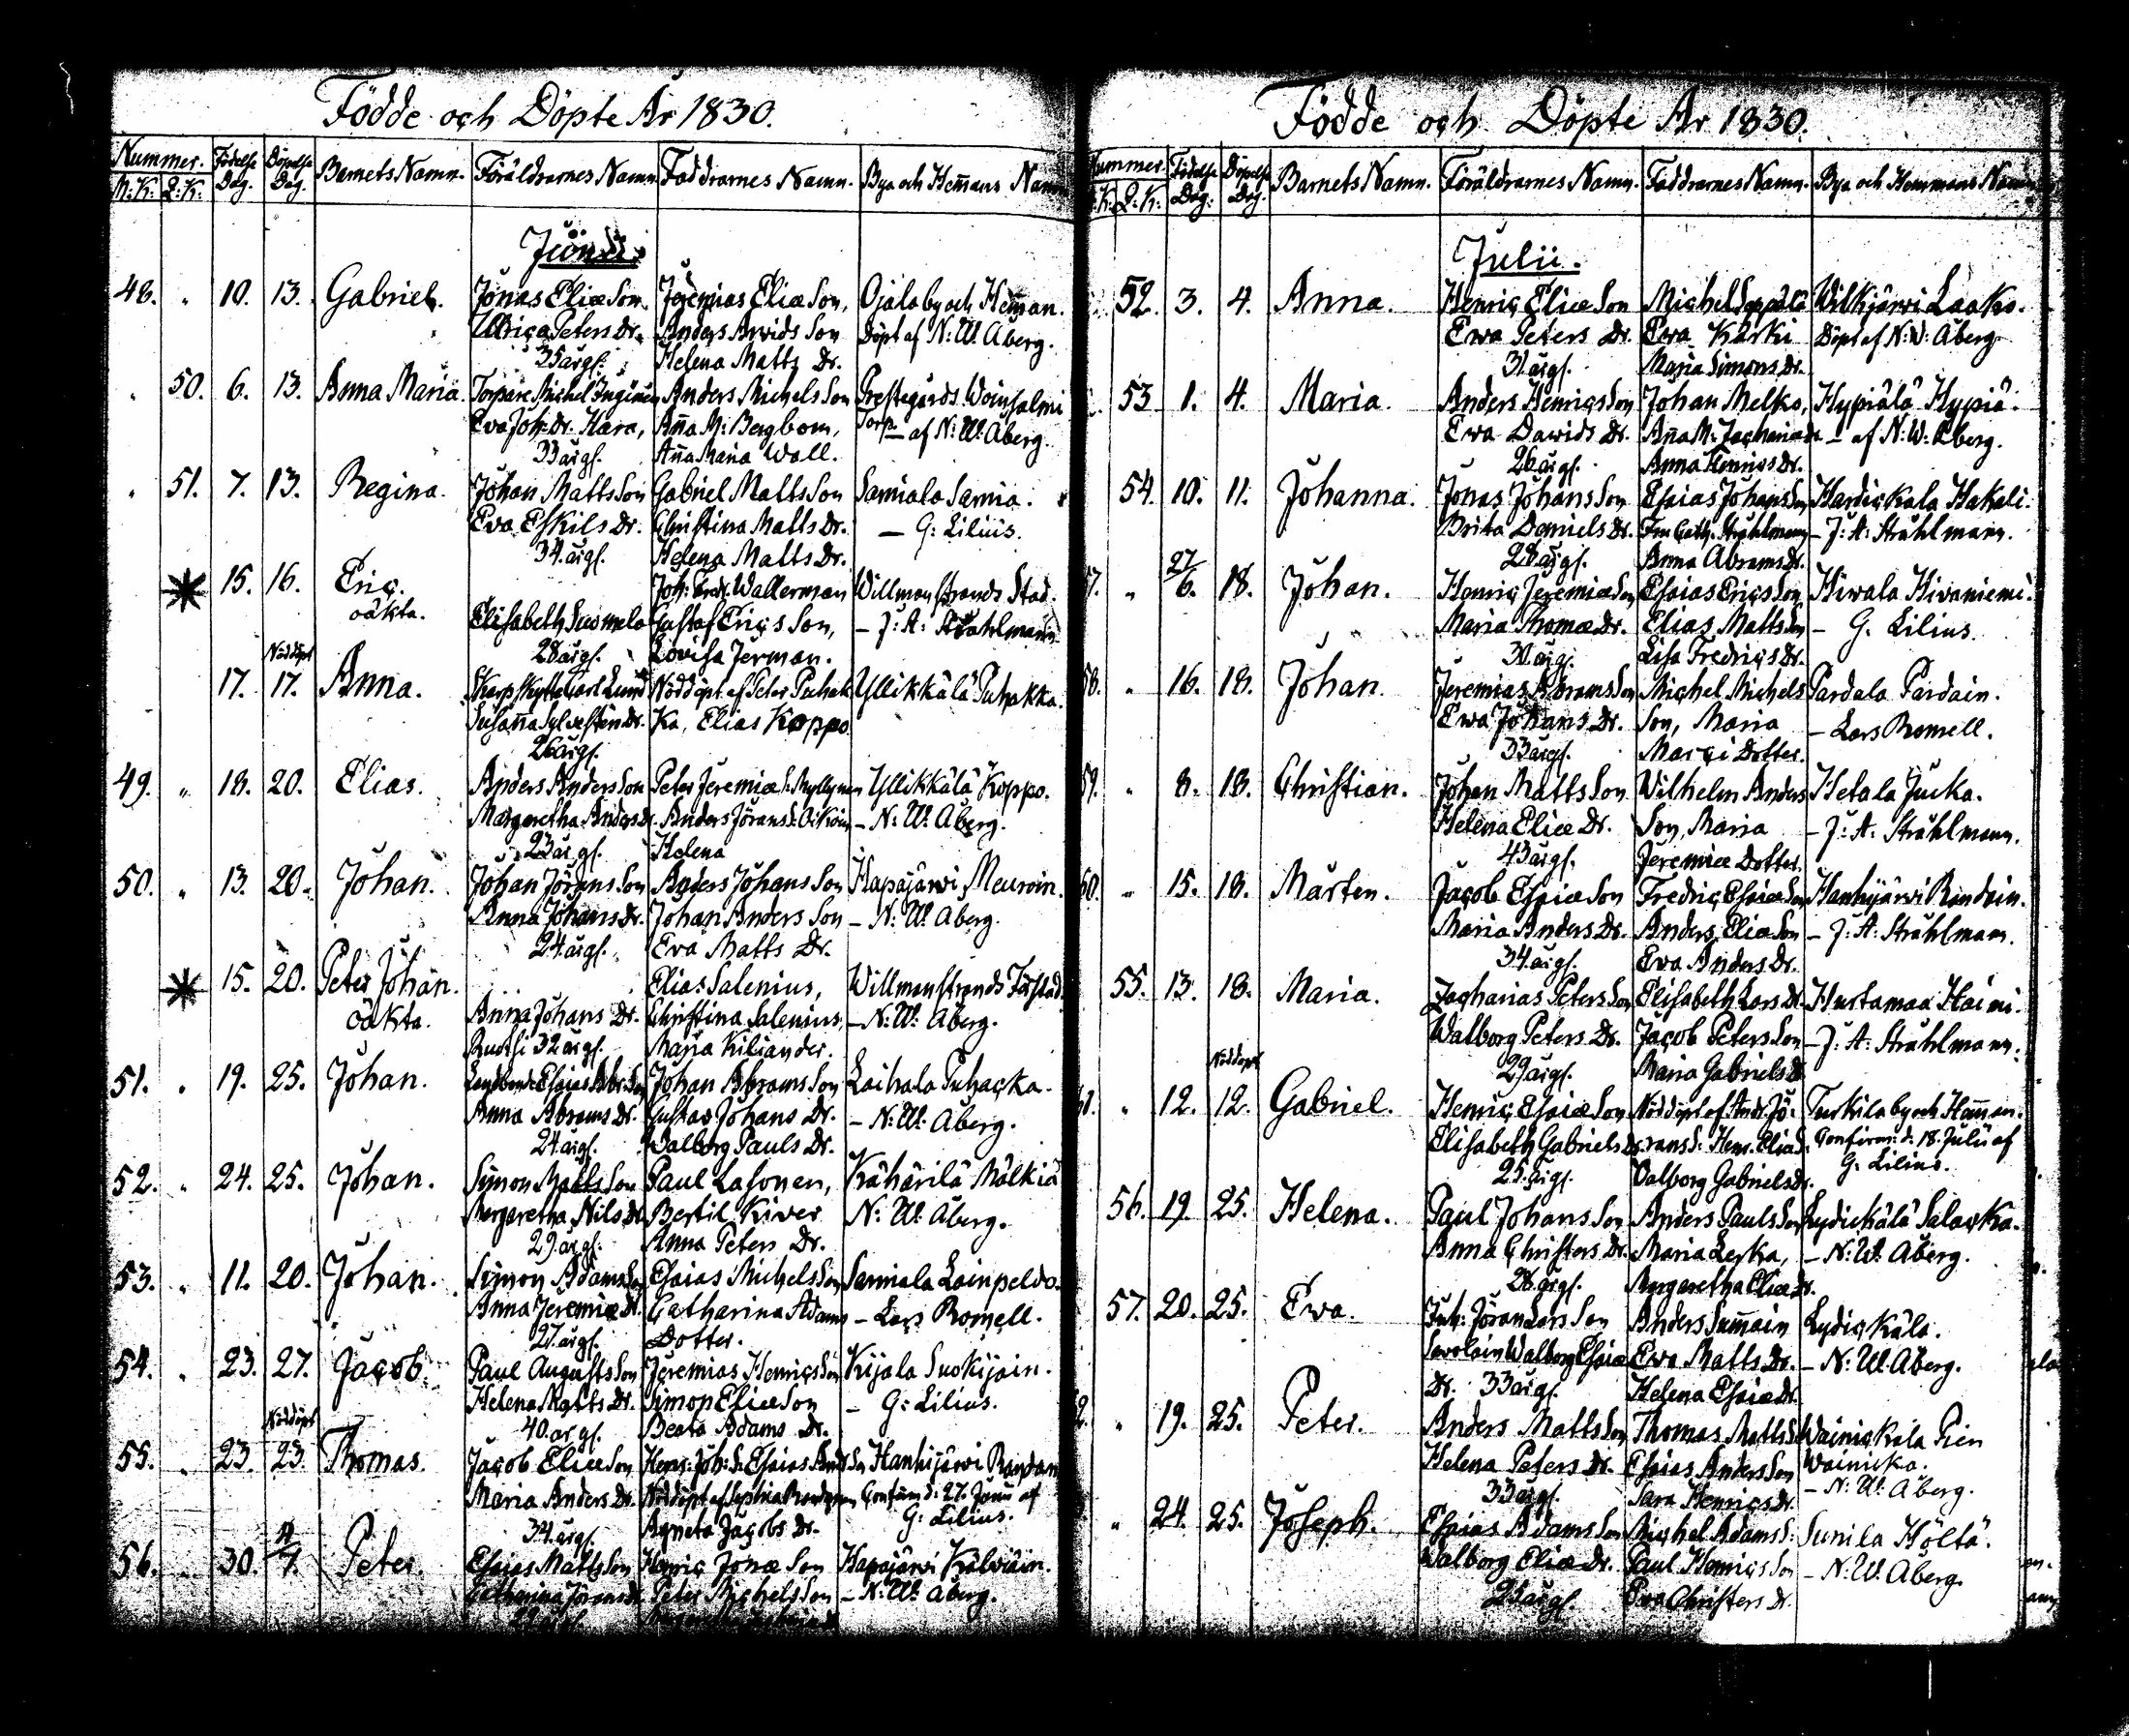 Födde och Döpte År 1830.
Nummer. Födelse Döpelse Barnets Namn. Föräldrarnes Namn. Faddrarnes Namn. Bya och Hem̃ans Namn
M:K: Q:K: Dag. Dag.
Junii.
48. " 10. 13. Gabriel. Jonas Eliæ Son Jeremias Eliæ Son, Ojala by och Hem̃an.
Ulrica Peters Dr. Anders Arvids Son Döpt af N: W. Åberg.
35 årgl. Helena Matts Dr.
" 50. 6. 13. Anna Maria. Torpare Michel Inginen Anders Michels Son Prestegårds Woinsalmi
Eva Joh: Dr. Hara, Añna M: Bergbom, Torp — af N: W. Åberg.
33 årgl. Añna Maria Wall.
" 51. 7. 13. Regina. Johan Matts Son Gabriel Matts Son Samiala Samia.
Eva Eskils Dr. Christina Matts Dr. — G: Lilius.
34. årgl. Helena Matts Dr.
15. 16. Eric. Joh: Fredr. Wallerman Willmanstrands Stad.
oäkta. Elisabeth Suomela Gustaf Erics Son, — J: A: Stråhlmann
28 årgl. Lovisa Jerman.
Nöddöpt
17. 17. Anna. Skarpskytte Carl Lund Nöddöpt af Peter Puhak Yllikkälä Puhakka.
Susanna Sylvesters Dr. Ka, Elias Koppo
26 årgl.
49. " 18. 20. Elias. Anders Anders Son Peter Jeremiæ S. Myllynen Yllikkälä Koppo.
Margaretha Anders Dr. Anders Jörans S: — N: W. Åberg.
23 årgl. Helena
50. " 13. 20. Johan. Johan Jörans Son Anders Johans Son Hapajärwi Meuroin.
Anna Johans Dr. Johan Anders Son — N: W. Åberg.
24. årgl. Eva Matts Dr.
15. 20. Peter Johan. Elias Salenius, Willmanstrands Förstad.
oäkta. Anna Johans Dr. Christina Salenius — N: W. Åberg.
32 årgl. Maria Kiliander.
51. " 19. 25. Johan. Landbonde Esaias Abr: Son Johan Abrams Son Laihala Puhacka.
Anna Abrams Dr. Gustav Johans Dr. — N: W. Åberg.
24 årgl. Walborg Pauls Dr.
52. " 24. 25. Johan. Simon Matts Son Paul Lasonen, Kähärilä Mälkiä
Margaretha Nils Dr. Bertil Kiver N: W. Åberg.
29. årgl. Anna Peters Dr.
53. " 11. 20. Johan. Simon Adams Son Esaias Michels Son Samiala Lainpeldo.
Anna Jeremiæ Dr. Catharina Adams — Lars Romell.
27. årgl. Dotter.
54. " 23. 27. Jacob. Paul Augusts Son Jeremias Henrics Son Kijala Suokijain.
Helena Matts Dr. Simon Eliæ Son — G: Lilius.
40. årgl. Beata Adams Dr.
Nöddöpt
55. " 23. 23. Thomas. Jacob Eliæ Son Henr: Joh: S: Esaias And: Son Hanhijärvi Randan
Maria Anders Dr. Nöddöpt af Confirm d: 27. Junii af
34. årgl. Agneta Jacobs Dr. G: Lilius.
56. 30. Peter. Esaias Matts Son Henric Jonæ Son Hapajärvi Kälviäin.
Catharina Jörans Dr. Peter Michels Son — N: W. Åberg.
Födde och Döpte År 1830.
Nummer. Födelse Döpelse Barnets Namn. Föräldrarnes Namn. Faddrarnes Namn. Bya och Hemmans Namn
K: Q: K: Dag: Dag.
Julii.
52. 3. 4. Anna. Henric Eliæ Son Michel Seppälä Wilkjärwi Laako.
Ewa Peters Dr. Ewa Kärki Döpt af N: W: Åberg.
31 årgl. Maria Simons Dr.
53 1. 4. Maria. Anders Henrics Son Johan Melko, Hypiälä Hypiä.
Ewa Davids Dr. Añna M: Zachariæ Dr — af N: W: Åberg.
26 årgl. Anna Henrics Dr.
54. 10. 11. Johanna. Jonas Johans Son Esaias Johans Son Hardickala Hakali.
Brita Daniels Dr. Fru Cath. Stråhlmann — J: A: Stråhlmann.
28 årgl. Anna Abrams Dr.
57. " 27/6. 18. Johan. Henric Jeremiæ Son Esaias Erics Son Hiwala Hivaniemi.
Maria Thomæ Dr. Elias Matts Son — G. Lilius.
30 årg. Lisa Fredrics Dr.
58. " 16. 18. Johan. Jeremias Abrams Son Michel Michels Pardala Pardain.
Ewa Johans Dr. Son, Maria — Lars Romell.
33 årgl. Marci Dotter.
59. " 8. 18. Christian. Johan Matts Son Wilhelm Anders Hetala Jucka.
Helena Eliæ Dr. Son, Maria — J: A: Stråhlmann.
43 årgl. Jeremiæ Dotter.
60. " 15. 18. Mårten. Jacob Esaiæ Son Fredric Esaiæ Son Hanhijärvi Randoin.
Maria Anders Dr. Anders Eliæ Son — J: A: Stråhlmann.
34. årgl. Ewa Anders Dr.
55. 13. 18. Maria. Zacharias Peters Son Elisabeth Lars Dr. Hurtamaa Haimi.
Walborg Peters Dr. Jacob Peters Son — J: A: Stråhlmann.
29 årgl. Maria Gabriels Dr
Nöddöpt
" 12. 12. Gabriel. Henric Esaiæ Son Nöddöpt af Andr. Jö: Turkila by och Hem̃an.
Elisabeth Gabriels Dr. rans S: Henr. Eliæ S. Confirm: d. 18. Julii af
25 årgl. Valborg Gabriels Dr. G: Lilius.
56. 19. 25. Helena. Paul Johans Son Anders Pauls Son Lydickälä Salacka.
Anna Christers Dr. Maria Leska, — N: W. Åberg.
28 årgl. Margaretha Eliæ Dr.
57. 20. 25. Ewa. Inh: Jöran Lars Son Anders Sum̃ain Lydickäla.
Savolain Walborg Esaiæ Ewa Matts Dr. — N: W. Åberg.
Dr. 33 årgl. Helena Esaiæ Dr.
2. " 19. 25. Peter. Anders Matts Son Thomas Matts S: Wainickala Pien
Helena Peters Dr. Esaias Anders Son Wainicka.
33 årgl. Sara Henrics Dr. — N: W. Åberg.
" 24. 25. Joseph. Esaias Adams Son Michel Adams S: Sunila Höltä.
Walborg Eliæ Dr. Paul Henrics Son — N: W. Åberg.
25 årgl. Ewa Christers Dr.